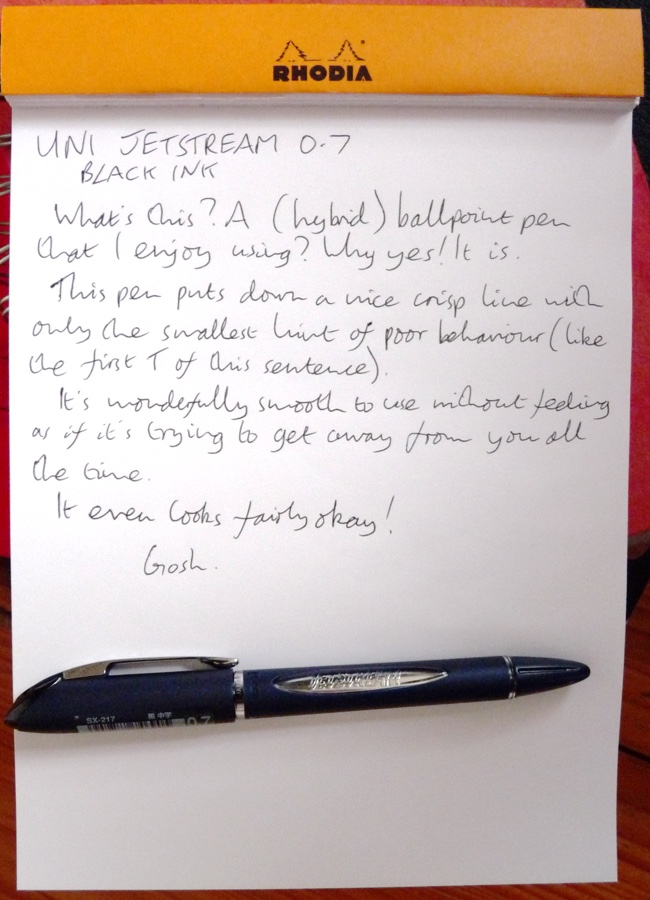 RHODIA
UNI JETSTREAM 0.7
BLACK INK
What's this? A (hybrid) ballpoint pen
that I enjoy using? Why yes! It is.
This pen puts down a nice crisp line with
only the smallest hint of poor behaviour (like
the first T of this sentence).
It's wondefully smooth to use without feeling
as if it's trying to get away from you all
the time.
It even looks fairly okay!
Gosh.
SX-217 黒 中字 0.7